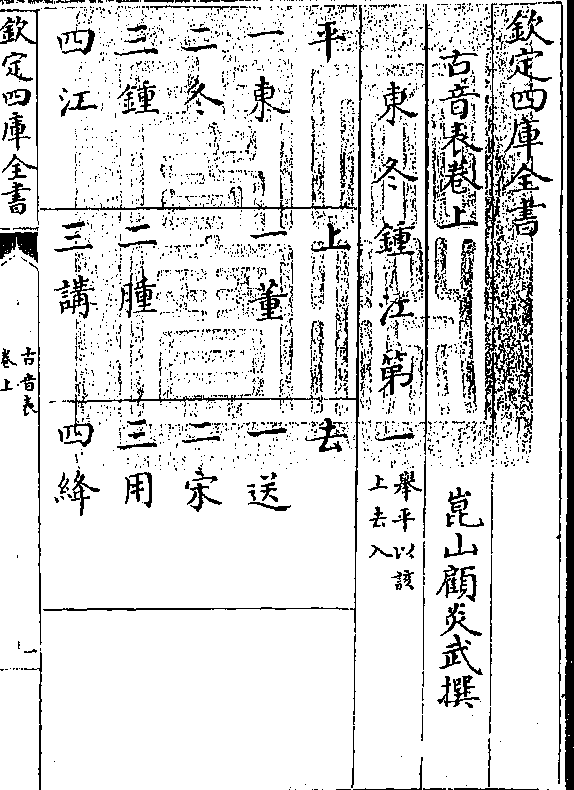 欽定四庫全書
古音表卷上
崑山顧炎武撰
東冬鍾江第一
舉平以該
上去入
平
上
去
一東
一董
一送
二冬
二宋
三鍾
二腫
三用
四江
三講
四絳
欽定四庫全書
古音表
卷上
一